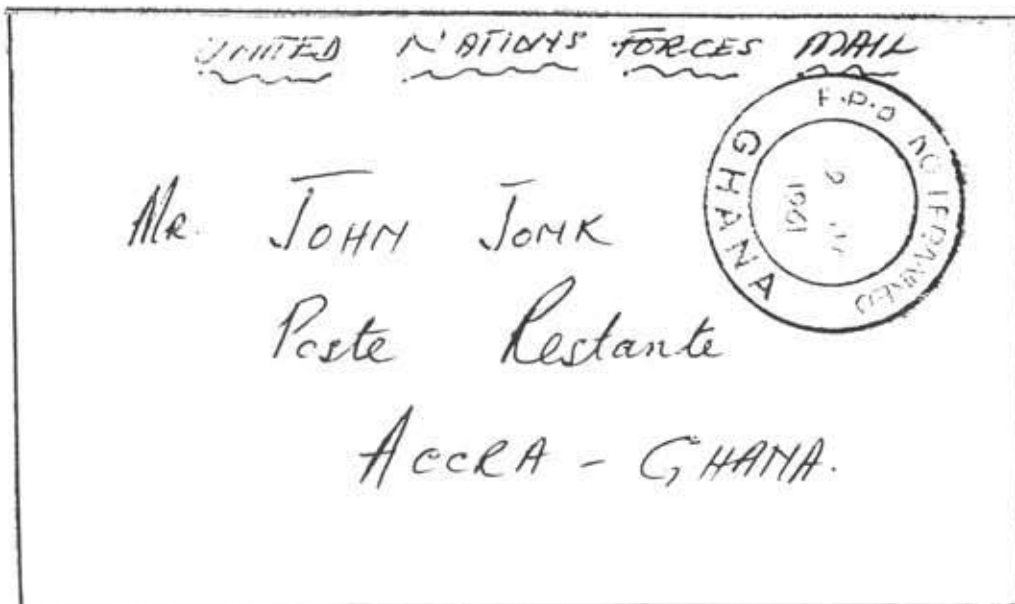 UNITED NATIONS FORCES MAIL
F.P.O
GHANA
1961
Mr. JOHN JONK
Poste Restante
ACCRA - GHANA.